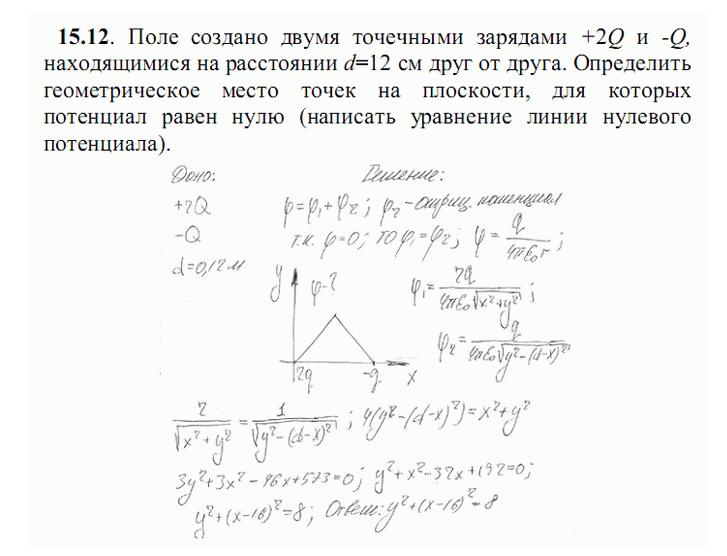 15.12. Поле создано двумя точечными зарядами +2Q и -Q,
находящимися на расстоянии d=12 см друг от друга. Определить
геометрическое место точек на плоскости, для которых
потенциал равен нулю (написать уравнение линии нулевого
потенциала).
Дано:
+2Q
-Q
d=0,12м
Решение:
φ=φ₁+φ₂; φ₂-отриц. потенциал
т.к. φ=0; то φ₁=φ₂; φ=q/(4πε₀r);
y
φ-?
2q
-q
x
φ₁=2q/(4πε₀√(x²+y²));
φ₂=q/(4πε₀√(y²-(d-x)²))
2/√(x²+y²)=1/√(y²-(d-x)²); 4(y²-(d-x)²)=x²+y²
3y²+3x²-96x+573=0; y²+x²-32x+192=0;
y²+(x-16)²=8; Ответ: y²+(x-16)²=8